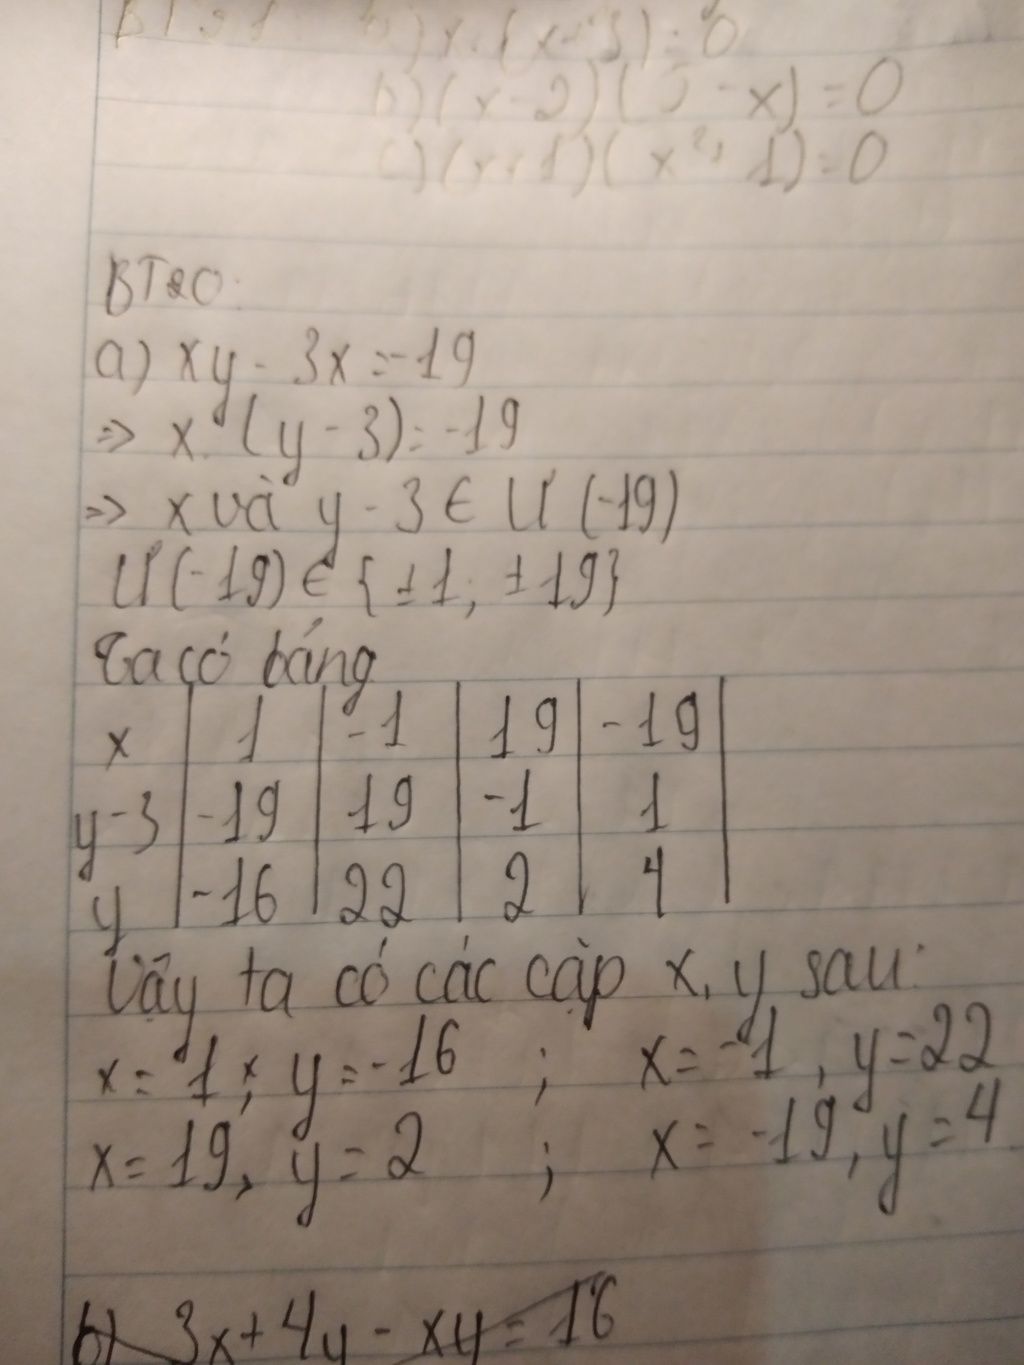 b) x.(x+3)=0
b) (x-2)(5-x)=0
c) (x+1)(x²+1)=0
BT20:
a) xy - 3x = -19
=> x.(y-3) = -19
=> x và y - 3 ∈ Ư(-19)
Ư(-19) ∈ {±1; ±19}
Ta có bảng
x | 1 | -1 | 19 | -19 |
y-3 | -19 | 19 | -1 | 1 |
y | -16 | 22 | 2 | 4 |
Vậy ta có các cặp x, y sau:
x = 1; y = -16 ; x = -1, y = 22
x = 19, y = 2 ; x = -19, y = 4
b) 3x + 4y - xy = 16